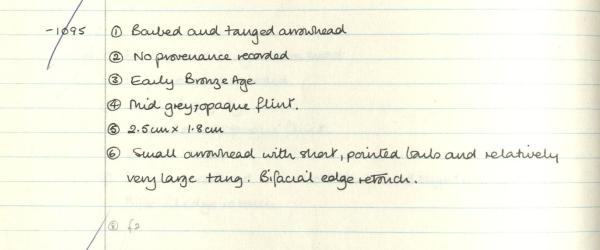 -1095 ① Barbed and tanged arrowhead
② No provenance recorded
③ Early Bronze Age
④ Mid grey, opaque flint.
⑤ 2.5cm x 1.8cm
⑥ Small arrowhead with short, pointed barbs and relatively
very large tang. Bifacial edge retouch.